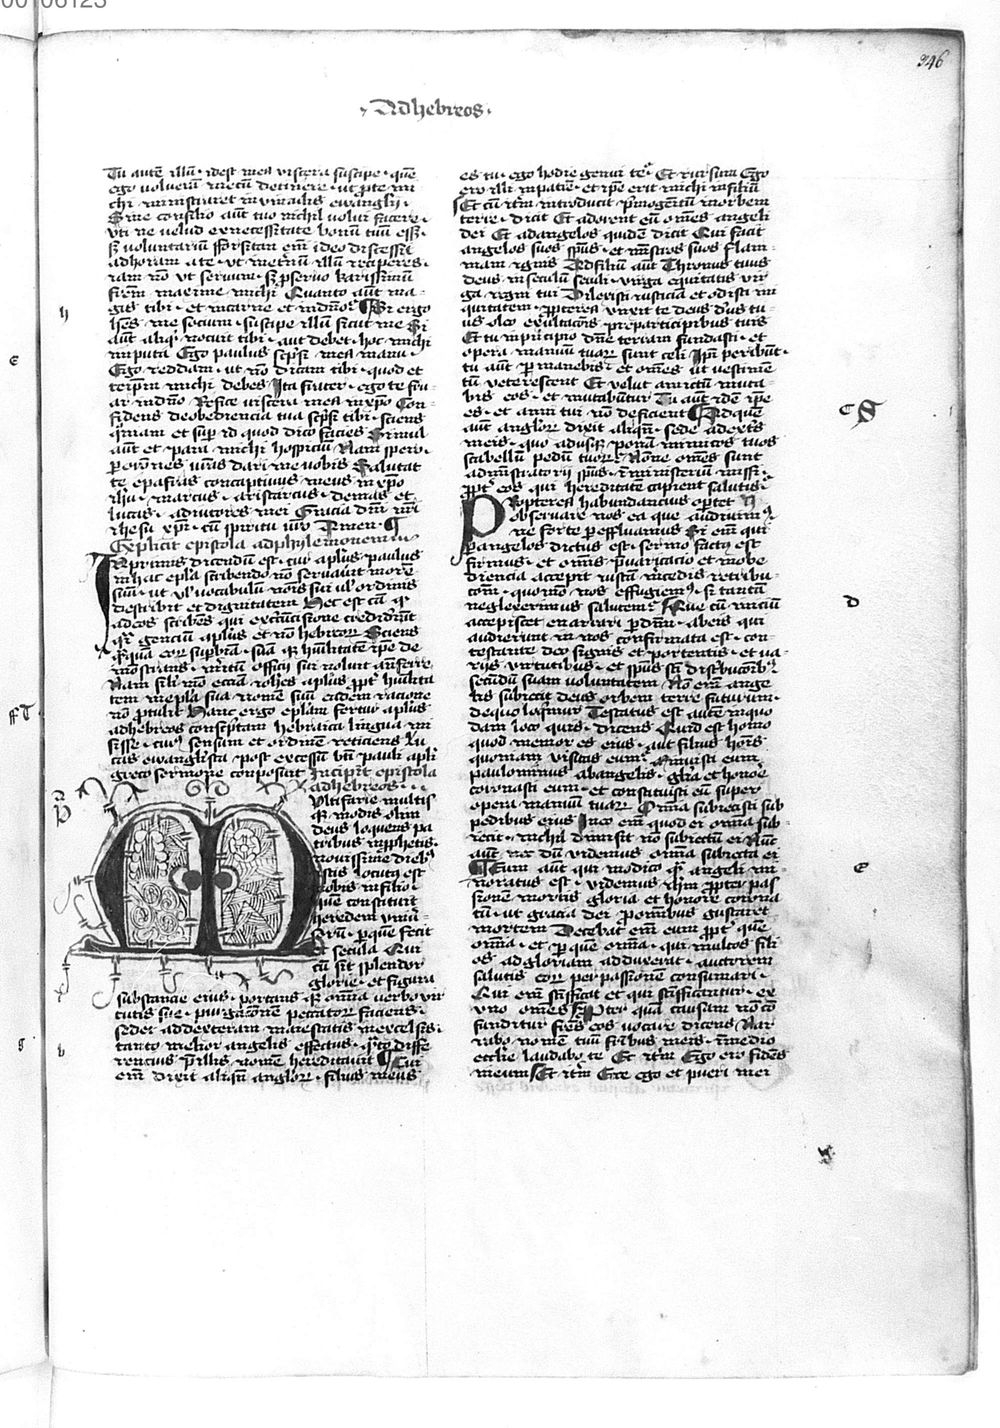 346
Ad hebreos
Tu autē illū · idest mea viscera suscipe · quē
ego volueram mecū detinere · ut pro te mi
chi ministraret in vinculis ewangelij ·
Sine consilio aūt tuo nichil volui facere ·
vti ne velud ex necessitate bonū tuū esset ·
s voluntariū Forsitan em ideo discessit
ad horam a te · ut eternū illū reciperes ·
iam nō vt servum · s p servo karissimū
frem maxime michi Quanto aūt ma
gis tibi · et in carne et in dno Si ergo
hēs me socium · suscipe illū sicut me Si
aūt aliqd nocuit tibi · aut debet · hoc michi
imputa Ego paulus scpsi mea manu ·
Ego reddam · ut nō dicam tibi · quod et
teipm michi debes Ita frater · ego te fru
ar in dno Refice viscera mea in xpo Con
fidens de obediencia tua scpsi tibi · sciens
qm et sup id quod dico facies Simul
aūt et para michi hospiciū Nam spero ·
p oones vras dari me vobis Salutat
te epafras concaptivus meus in xpo
ihu · marcus · aristarcus · demas et
lucas · adiutores mei Gracia dni nri
ihesu xpi · cū spiritu vro Amen ·
Explicit epistola ad phylemonem
In primis dicendū est · cur aplus paulus
in hac epla scribendo nō servavit morē
suū · ut vl vocabulū nois sui vl ordinis
describit et dignitatem Hec est cā q
ad eos scribens qui ex circūcisione crediderūt
qsi genciū aplus et nō hebreorū Sciens
q quā eorū supbiā · suā q humilitatē ipe de
mōstrans · meritū officij sui noluit anferre
Nam sili mō eciā iohēs aplus ppt humilita
tem in epla sua nomē suū eadem racione
nō ptulit Hanc ergo eplam fertur aplus
ad hebreos conscptam hebraica lingua mi
sisse · cui sensum et ordinē retinens lu
cas ewangelista post excessum bti pauli apli
greco sermone composuit Incipit epistola
ad hebreos ·
Multifarie multis
q modis olim
deus loquens pa
tribus in pphetis ·
novissime dieb
istis locut est
nobis in filio ·
que constituit
heredem univ
sorū · p que fecit
et secula Qui
cū sit splendor
glorie · et figura
substancie eius · portans q omia verbo vir
tutis sue · purgacōnem peccatorū faciens ·
sedet ad dexteram maiestatis in excelsis ·
tanto melior angelis effectus · qto diffe
rencius p illis nomē hereditavit Cui
em dixit aliqn anglorū · filius meus
es tu · ego hodie genui te Et rursum Ego
ero illi in patrē · et ipe erit michi in filiū
Et cū itm introducit pmogenitū in orbem
terre · dicit Et adorent eū omēs angeli
dei Et ad angelos quidē dicit Qui facit
angelos suos spūs · et mīstros suos flam
mam ignis Ad filiū aūt Thronus tuus
deus in seculū seculi · virga equitatis vir
ga regni tui Dilexisti iusticiā et odisti ini
quitatem · ppterea vnxit te deus ds tu
us oleo exultacōis · pre participibus tuis
Et tu in pricipio dne terram fundasti · et
opera manuū tuarū sunt celi Ipsi peribūt ·
tu aūt p manebis · et omēs ut vestimē
tū veterescent Et velut amictū muta
bis eos · et mutabūtur Tu aūt idē ipe
es · et anni tui nō deficient Ad quē
aūt anglorū dixit aliqn · sede a dextris
meis · quo adusq ponā inimicos tuos
scabellū pedū tuorū Nōne omēs sunt
administratorij spūs · in ministeriū missi ·
ppt eos qui hereditatē capient salutis
Propterea habundancius oportet
observare nos ea que audivim
ne forte p effluamus Si em qui
p angelos dictus est · sermo factus est
firmus · et omis pvaricacio et inobe
diencia accepit iustā mcedis retribu
cōm · quomō nos effugiem · si tantā
neglexerimus salutem Que cū iniciū
accepisset enarrari p dnm · ab eis qui
audierunt in nos confirmata est · con
testante deo signis et portentis · et va
rijs virtutibus · et spūs sci distribucōib
secūdū suam voluntatem Nō em ange
lis subiecit deus orbem terre futurum ·
de quo loqimur Testatus est autē in quo
dam loco quis · dicens Quid est homo
quod memor es eius · aut filius hois
quoniam visitas eum Minuisti eum
paulominus ab angelis · glia et honoē
coronasti eum · et constituisti eū super
opera manuū tuarū Omīa subiecisti sub
pedibus eius In eo em quod ei omīa sub
iecit · nichil dimisit nō subiectū ei Nūc
aūt nec dū videmus omīa subiecta ei
Eum aūt qui modico q angeli mi
noratus est · videmus ihm ppter pas
sionē mortis gloria et honore corona
tū · ut gracia dei p omībus gustaret
mortem Decebat em eum ppt quē
omīa · et p que omīa · qui multos fili
os ad gloriam adduxerat · auctorem
salutis eorū per passionē consumari ·
Qui em scificat et qui scificantur · ex
vno omēs Ppter quā causam nō cō
funditur fres eos vocare dicens Nar
rabo nomē tuū fribus meis · in medio
ecclie laudabo te Et itm Ego ero fidēs
in eum Et itm Ecce ego et pueri mei